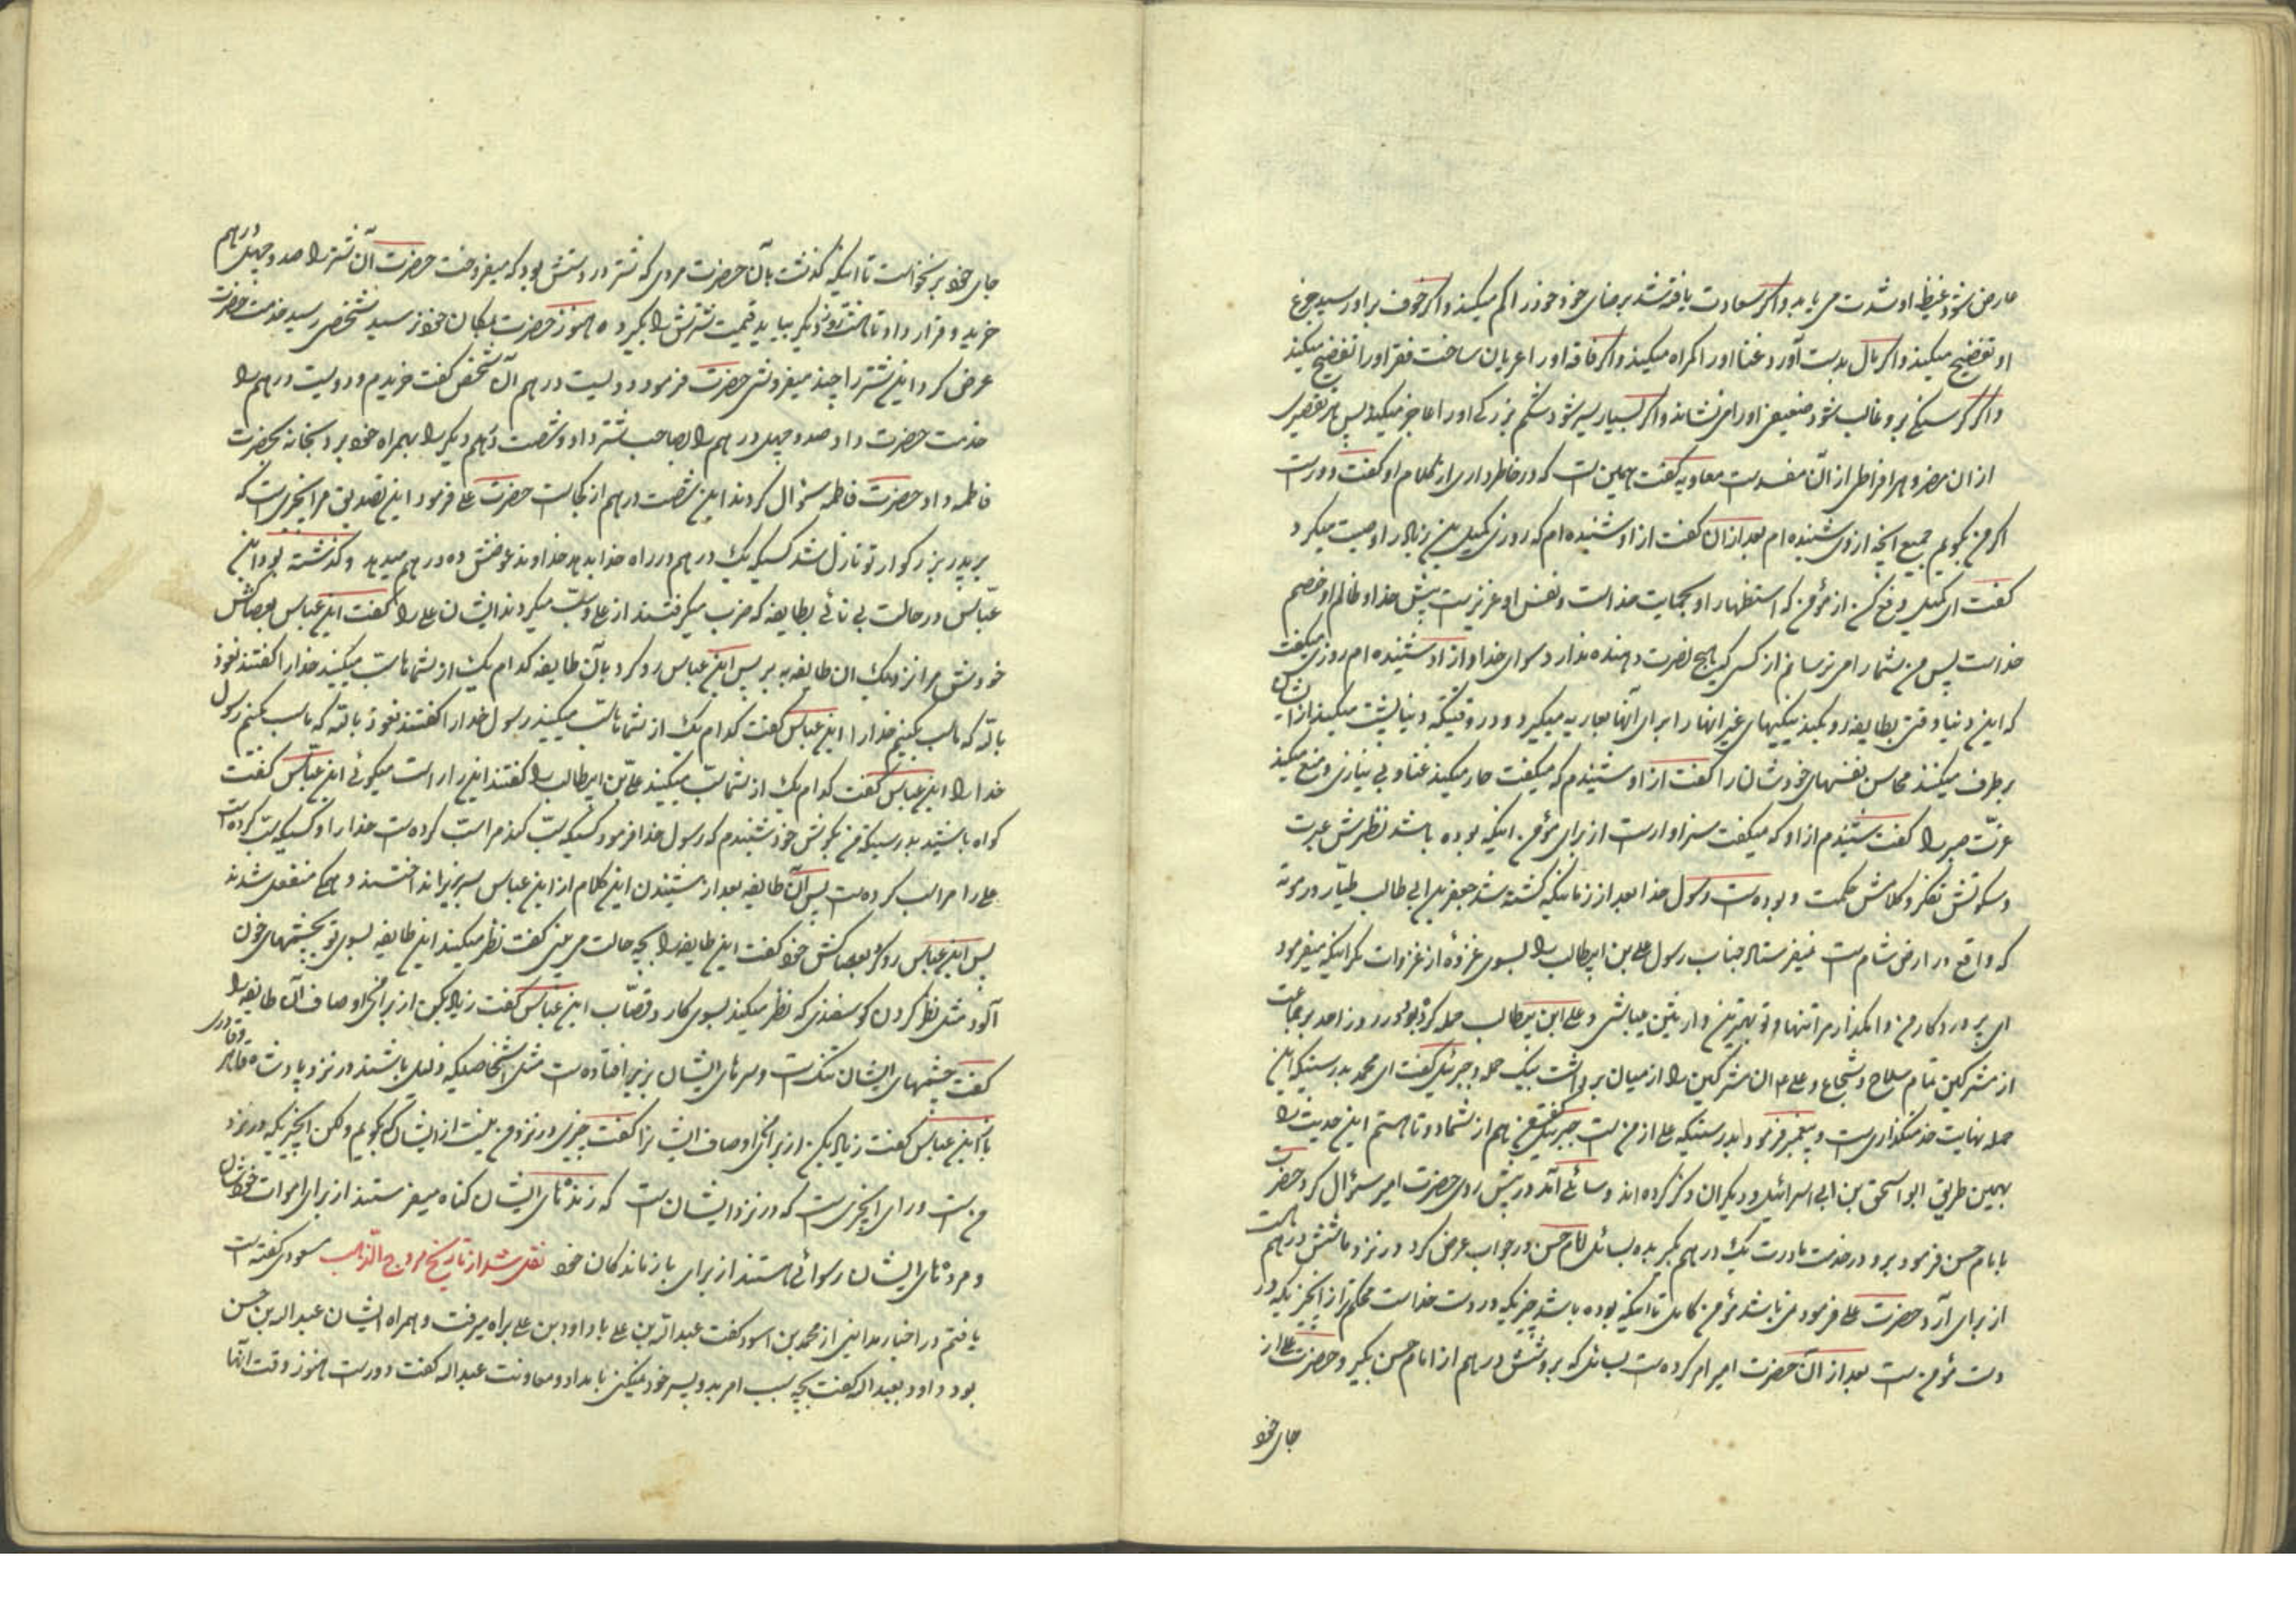 عارض شود غیظ او شدت می یابد و اکر سعادت یافته شد برضای خود خود را کم میکند و اکر خوف براو رسید جزع
او تفضیح میکند و اکر مال بدست آورد غنا او را کمراه میکند و اکر فاقه او را عریان ساخت فقر او را تفضیح میکند
و اکر کرسنکی برو غالب شود ضعیفی او را می نشاند و اکر بسیار سیر شود شکم بزرکی او را عاجز میکند پس هر تقصیری
از آن مضر و هر افراطی از آن مفسد است معاویه کفت همین است که در خاطر داری از کلام او کفت دور است
اکر من بکویم جمیع انچه از وی شنیده ام بعد از آن کفت از او شنیده ام که روزی کمیل بن زیاد را وصیت میکرد
کفت ای کمیل دفع کن از مؤمن که استظهار او بحمایت خداست و نفس او عزیز است پیش خدا و ظالم او خصم
خداست پس من شما را می ترسانم از کسی که هیچ نصرت دهنده ندارد سوای خدا و از او شنیده ام روزی میکفت
که این دنیا وقتی بطایفه رو بکند نیکیهای غیر انها را برای آنها بعاریه میکیرد و در وقتیکه دنیا پشت میکند از ایشان
برطرف میکنند محاسن نفسهای خودشان را کفت از او شنیدم که میکفت عار میکند غنا و بی نیازی و منع میکند
عزّت صبر را کفت شنیدم از او که میکفت سزاوار است از برای مؤمن اینکه بوده باشد نظرش عبرت
و سکوتش تفکر و کلامش حکمت و بوده است رسول خدا بعد از زمانیکه کشته شد جعفر بن ابی طالب طیّار در موته
که واقع در ارض شام است نمیفرستاد جناب رسول علی بن ابیطالب را بسوی غزوهٔ از غزوات مکر اینکه میفرمود
ای پروردکار من وا مکذار مرا تنها و تو بهترین وارثین میباشی و علی ابن ابیطالب حمله کرده بود در روز احد بر جماعت
از مشرکین تمام سلاح و شجاع و علی ع آن مشرکین را از میان برداشت بیک حمله و جبرئیل کفت ای محمد بدرستیکه این
حمله نهایت خدمتکذاری است و پیغمبر فرمود بدرستیکه علی از من است جبرئیل کفت من هم از شما دو تا هستم این حدیث را
بهمین طریق ابو اسحق بن ابی اسرائیل و دیکران ذکر کرده اند و سائلی آمد در پیش روی حضرت امیر سؤال کرد حضرت
بامام حسن فرمود برو در خدمت مادرت یک درهم بکیر بده بسائل امام حسن در جواب عرض کرد در نزد ما شش درهم است
از برای آرد حضرت علی فرمود نمی باشد مؤمن کامل تا اینکه بوده باشد چیزیکه در دست خداست محکم تر از انچیزیکه در
دست مؤمن است بعد از آن حضرت امیر امر کرده است بسائل که برو شش درهم از امام حسن بکیر و حضرت علی از
جای خود
جای خود برنخواست تا اینکه کذشت بآن حضرت مردی که شتر در دستش بود که میفروخت حضرت آن شتر را صد و چهل درهم
خرید و قرار داد تا هشت روز دیکر بیاید قیمت شترش را بکیرد ه هنوز حضرت بمکان خود نرسید شخصی رسید خدمت حضرت
عرض کرد این شتر را چند میفروشی حضرت فرمود دویست درهم آن شخص کفت خریدم و دویست درهم را
خدمت حضرت داد صد و چهل درهم را بصاحب شتر داد و شصت درهم دیکر را بهمراه خود برد بخانه بحضرت
فاطمه داد حضرت فاطمه سؤال کردند این شصت درهم از کجاست حضرت علی فرمود این تصدیق مر انچیزیست که
بر پدر بزرکوار تو نازل شد کسیکه یک درهم در راه خدا بدهد خداوند عوضش ده درهم میدهد و کذشته بود ابن
عبّاس در حالت بی نائی بطایفه که ضرب میکرفتند از علی و سبّ میکردند ایشان علی را کفت ابن عباس بعصاکش
خودش مرا نزدیک ان طایفه به بر پس ابن عباس رو کرد بآن طایفه کدام یک از شماها سب میکنید خدا را کفتند نعوذ
بالله که ما سب بکنیم خدا را ابن عباس کفت کدام یک از شماها سبّ میکنید رسول خدا را کفتند نعوذ بالله که ما سب بکنیم رسول
خدا را ابن عباس کفت کدام یک از شما سبّ میکنید علیّ بن ابیطالب را کفتند این را راست میکوئی ابن عبّاس کفت
کواه باشید بدرستیکه من بکوش خود شنیدم که رسول خدا فرمود کسیکه سبّ کند مرا سبّ کرده است خدا را و کسیکه سبّ کرده است
علی را مرا سب کرده است پس آن طایفه بعد از شنیدن این کلام از ابن عباس سر بزیر انداختند و همکی منفعل شدند
پس ابن عباس رو کرد بعصاکش خود کفت این طایفه را بچه حالت می بینی کفت نظر میکنند این طایفه بسوی تو بچشمهای خون
آلود مثل نظر کردن کوسفندی که نظر میکند بسوی کارد قصّاب ابن عبّاس کفت زیاد بکن از برای من اوصاف آن طایفه را
کفت چشمهای ایشان تنک است و سرهای ایشان بزیر افتاده است مثل اشخاصیکه ذلیل باشند در نزد پادشاه قاهر و قادری
باز ابن عباس کفت زیاد بکن از برای من اوصاف ایشانرا کفت چیزی در نزد من نیست از ایشان که بکویم و لکن انچیزیکه در نزد
من است ورای انچیزی است که در نزد ایشان است که زنده های ایشان کناه میفرستند از برای اموات خودشان
و مرده های ایشان رسوائی هستند از برای بازماندکان خود نقل شد از تاریخ مروج الذّهب مسعودی کفته است
یافتم در اخبار مداینی از محمد بن اسود کفت عبدالله بن علی با داود بن علی براه میرفت و همراه ایشان عبدالله بن حسن
بود داود بعبدالله کفت بچه سبب امر بدو پسر خود نمیکنی بامداد و معاونت عبدالله کفت دور است هنوز وقت آنها